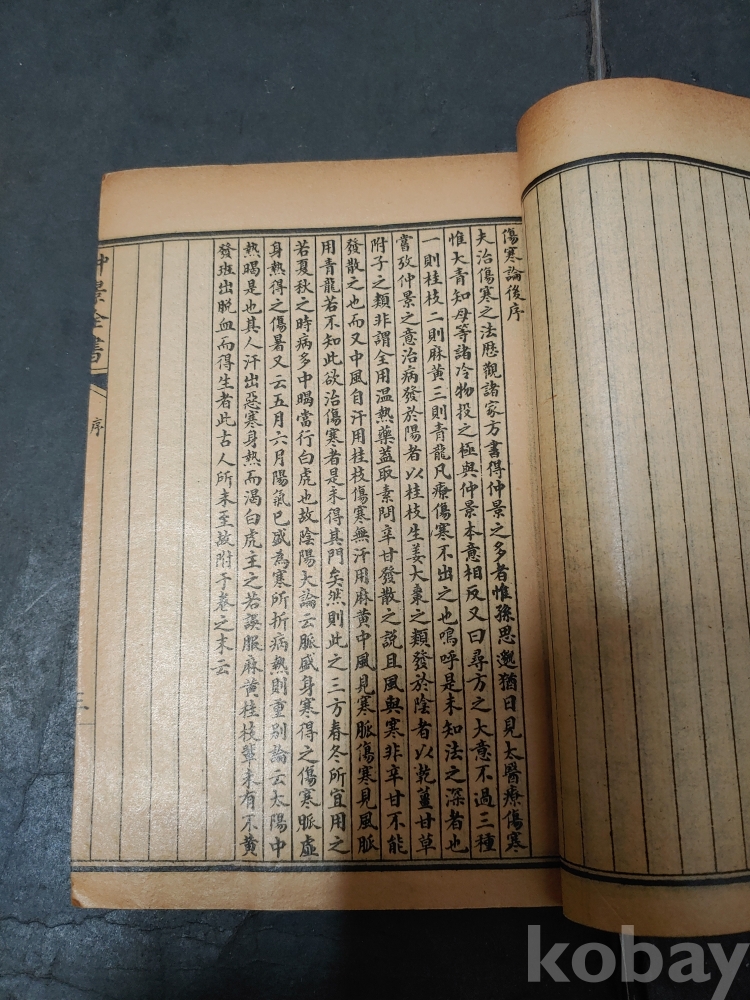 傷寒論後序
夫治傷寒之法歷觀諸家方書得仲景之多者惟孫思邈猶曰見太醫療傷寒
惟大青知母等諸冷物投之極與仲景本意相反又曰尋方之大意不過三種
一則桂枝二則麻黃三則青龍凡療傷寒不出之也嗚呼是未知法之深者也
嘗攷仲景之意治病發於陽者以桂枝生姜大棗之類發於陰者以乾薑甘草
附子之類非謂全用溫熱藥蓋取素問辛甘發散之說且風與寒非辛甘不能
發散之也而又中風自汗用桂枝傷寒無汗用麻黃中風見寒脈傷寒見風脈
用青龍若不知此欲治傷寒者是未得其門矣然則此之三方春冬所宜用之
若夏秋之時病多中暍當行白虎也故陰陽大論云脈盛身寒得之傷寒脈虛
身熱得之傷暑又云五月六月陽氣已盛為寒所折病熱則重別論云太陽中
熱暍是也其人汗出惡寒身熱而渴白虎主之若誤服麻黃桂枝輩未有不黃
發班出脫血而得生者此古人所未至故附于卷之末云
仲景全書
序
三
kobay